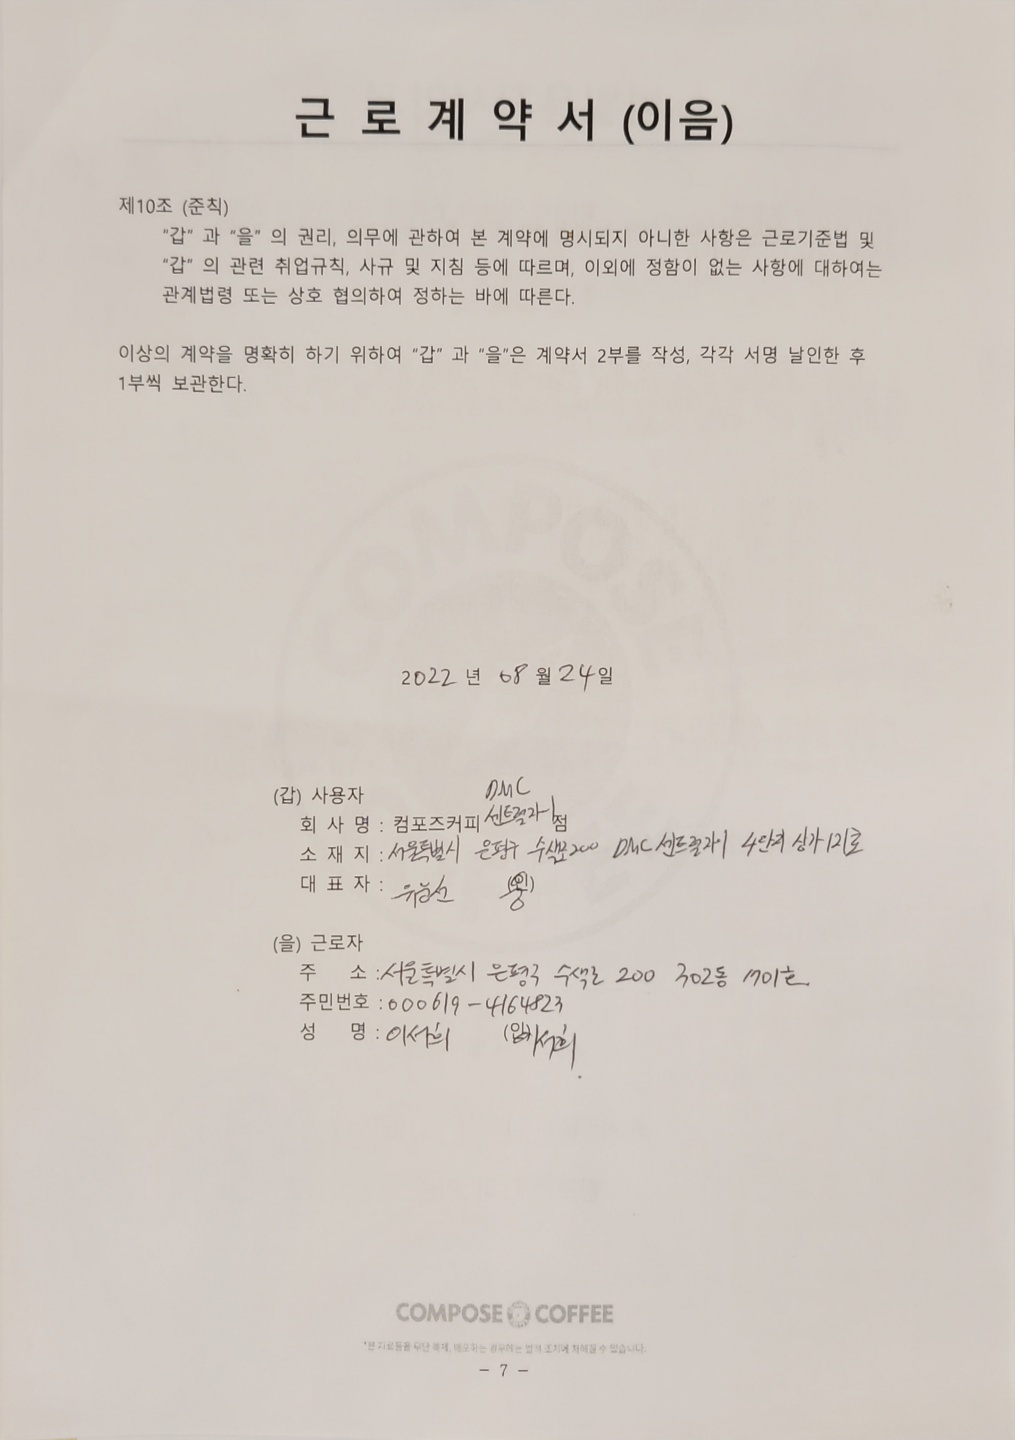 근 로 계 약 서 (이음)
제10조 (준칙)
"갑" 과 "을" 의 권리, 의무에 관하여 본 계약에 명시되지 아니한 사항은 근로기준법 및
"갑" 의 관련 취업규칙, 사규 및 지침 등에 따르며, 이외에 정함이 없는 사항에 대하여는
관계법령 또는 상호 협의하여 정하는 바에 따른다.
이상의 계약을 명확히 하기 위하여 "갑" 과 "을"은 계약서 2부를 작성, 각각 서명 날인한 후
1부씩 보관한다.
COMPOSE
2022 년 08 월 24 일
(갑) 사용자
DMC
회 사 명 : 컴포즈커피 센트럴자이 점
소 재 지 : 서울특별시 은평구 수색로 200 DMC 센트럴자이 4단지 상가
대 표 자 :
(을) 근로자
주 소 : 서울특별시 은평구 수색로 200 302동 1701호
주민번호 : 000619-4164823
성 명 : 이서희 (인) 이서희
COMPOSE COFFEE
*본 자료들을 무단 복제, 배포하는 경우에는 법적 조치에 처해질 수 있습니다.
- 7 -